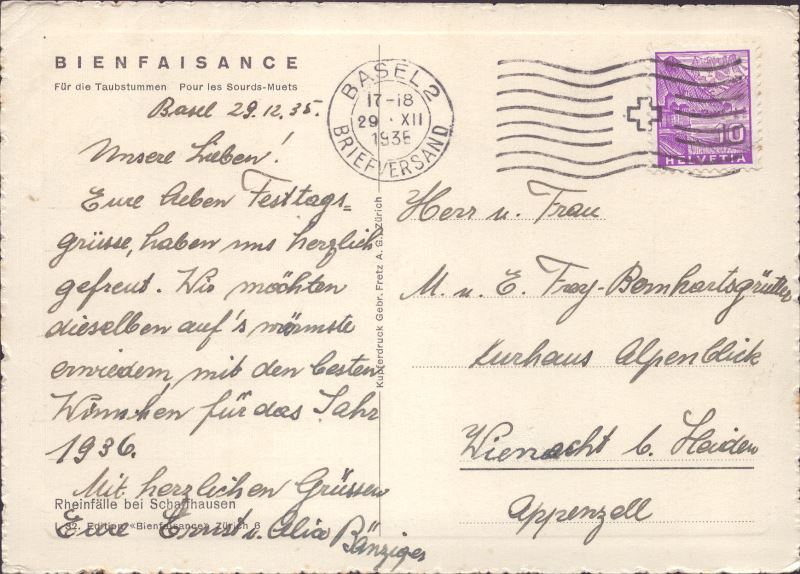 BIENFAISANCE
Für die Taubstummen Pour les Sourds-Muets
Basel 29.12.35.
Unsere Lieben!
Eure lieben Festtags-
grüsse, haben uns herzlich
gefreut. Wir möchten
dieselben auf's wärmste
erwiedern, mit den besten
Wünschen für das Jahr
1936.
Mit herzlichen Grüssen
Eure Ernst u.
Rheinfälle bei Schaffhausen
Edition «Bienfaisance» Zürich 6
Kupferdruck Gebr. Fretz A. G. Zürich
BASEL 2
17-18
29 · XII
1935
BRIEFVERSAND
10
HELVETIA
Herr u. Frau
M. u. E. Frey-Bernhartsgrütter
Kurhaus Alpenblick
Wienacht b. Heiden
Appenzell